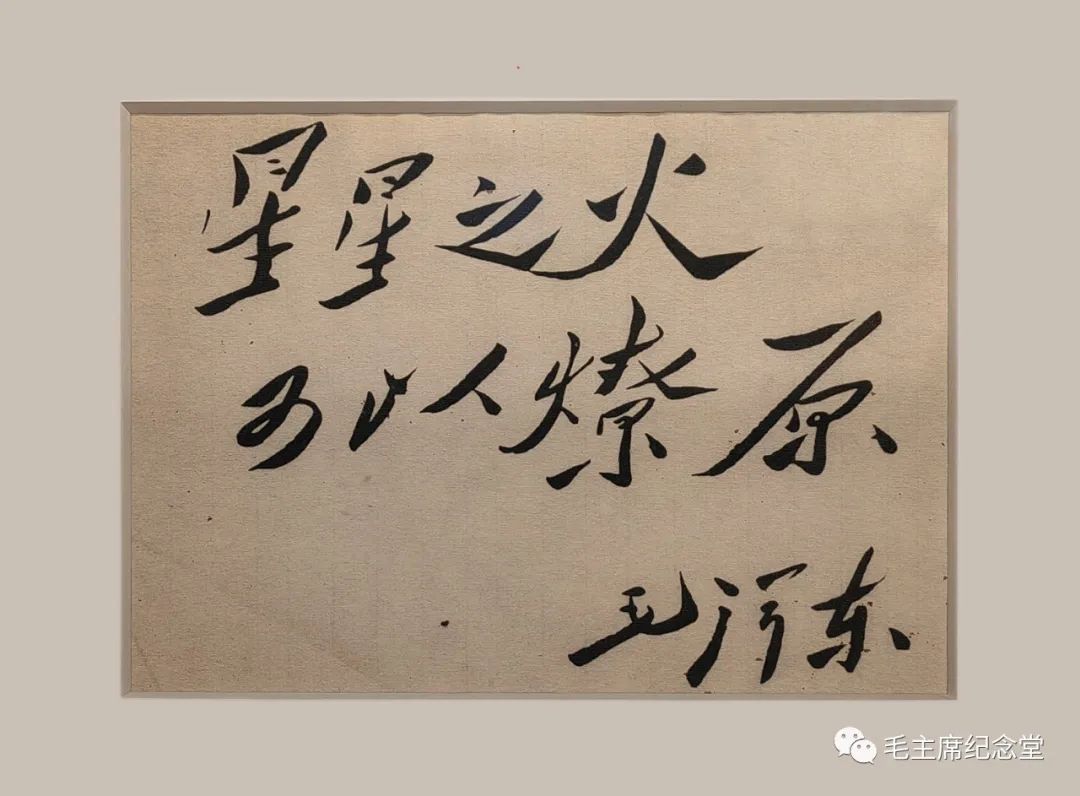 星星之火
可以燎原
毛泽东
毛主席纪念堂